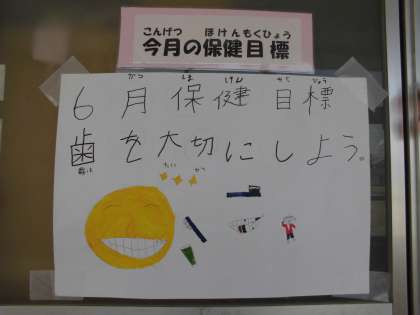 こんげつ ほけんもくひょう
今月の保健目標
がつ ほ けん もく ひょう
6月保健目標
歯を大切にしよう。
たい せつ